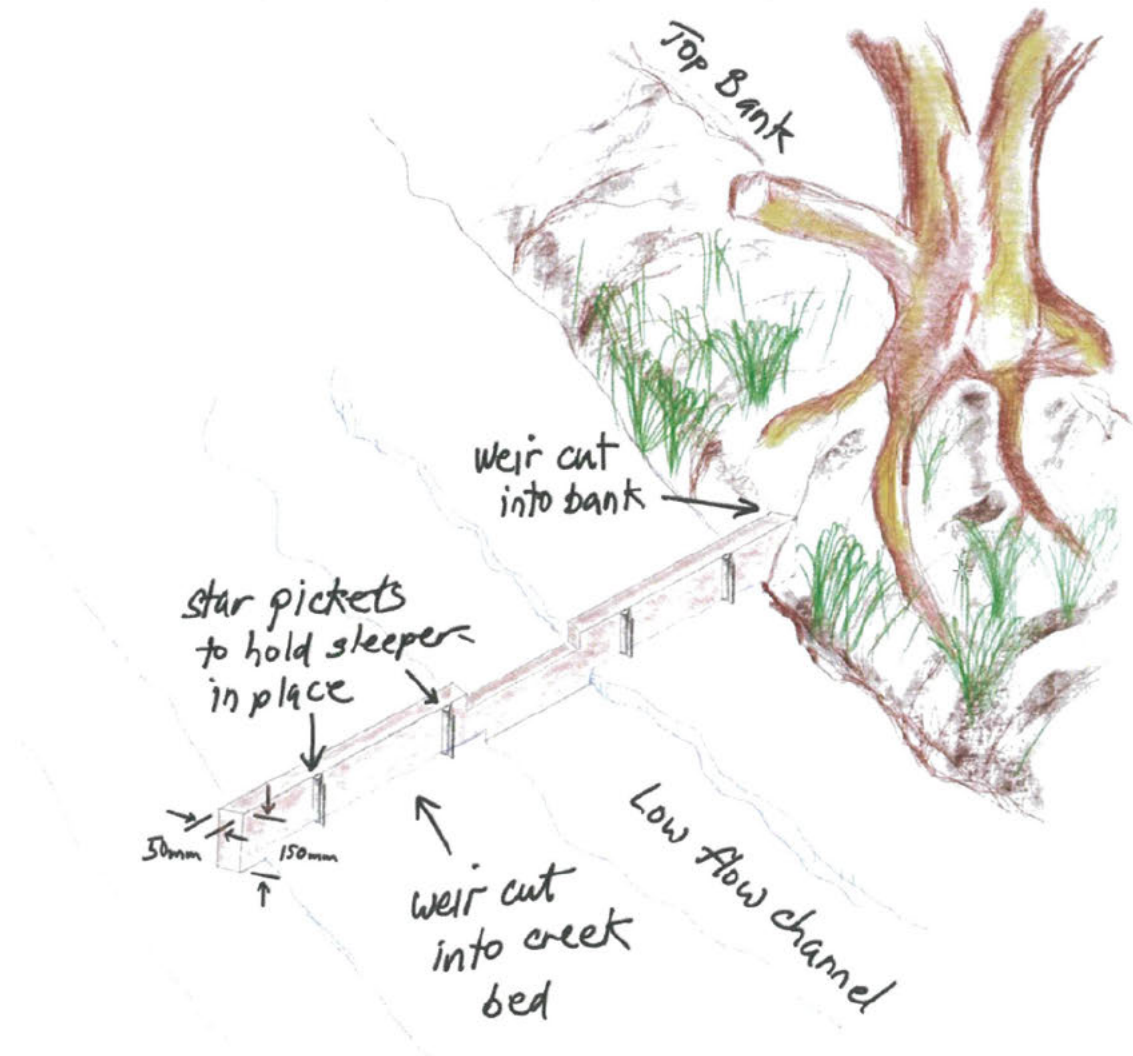 Top Bank
weir cut
into bank
star pickets
to hold sleeper
in place
50mm
150mm
weir cut
into creek
bed
Low flow channel